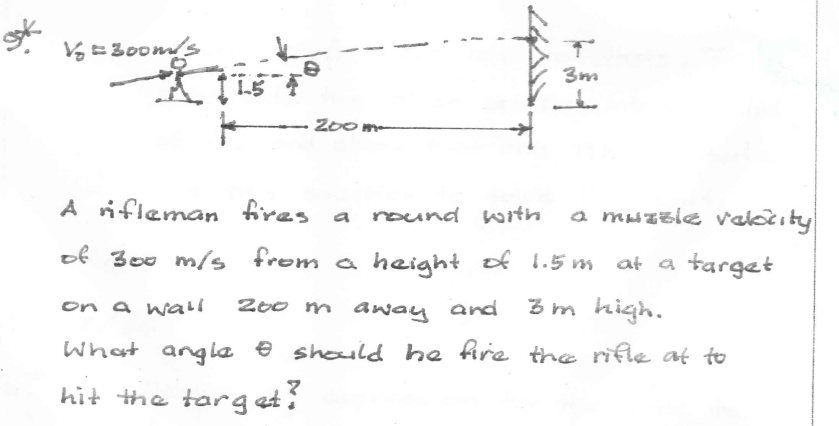 9*.
V₀ = 300 m/s
θ
1.5
3m
200 m
A rifleman fires a round with a muzzle velocity
of 300 m/s from a height of 1.5 m at a target
on a wall 200 m away and 3 m high.
What angle θ should he fire the rifle at to
hit the target?